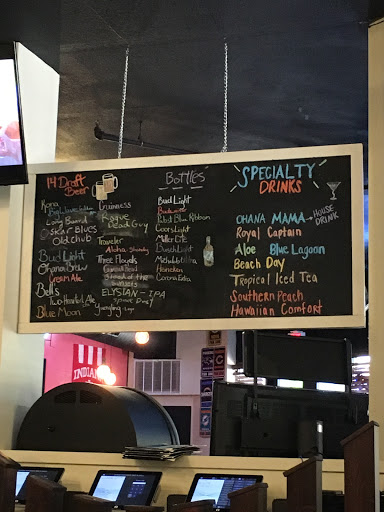 14 Draft
Beer
Kona
Long Board
Oskar Blues
Old chub
Bud Light
Ohana Brew
Cream Ale
Bell's
Two Hearted Ale
Blue Moon
Guinness
Rogue
Dead Guy
Traveler
Aloha Shandy
Three Floyds
Gumball Head
ELYSIAN - IPA
Space Dust
Yuengling Lager
Bottles
Bud Light
Budweiser
Pabst Blue Ribbon
Coors Light
Miller Lite
Busch Light
Michelob Ultra
Heineken
Corona Extra
SPECIALTY
DRINKS
OHANA MAMA → HOUSE DRINK
Royal Captain
Aloe Blue Lagoon
Beach Day
Tropical Iced Tea
Southern Peach
Hawaiian Comfort
INDIANA